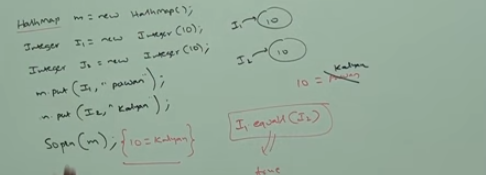 HashMap m = new HashMap();
Integer I1 = new Integer(10);
Integer I2 = new Integer(10);
m.put(I1, "pawan");
m.put(I2, "Kalyan");
Sopln(m); {10=Kalyan}
I1 → 10
I2 → 10
Kalyan
10 = pawan
I1 equals(I2)
true